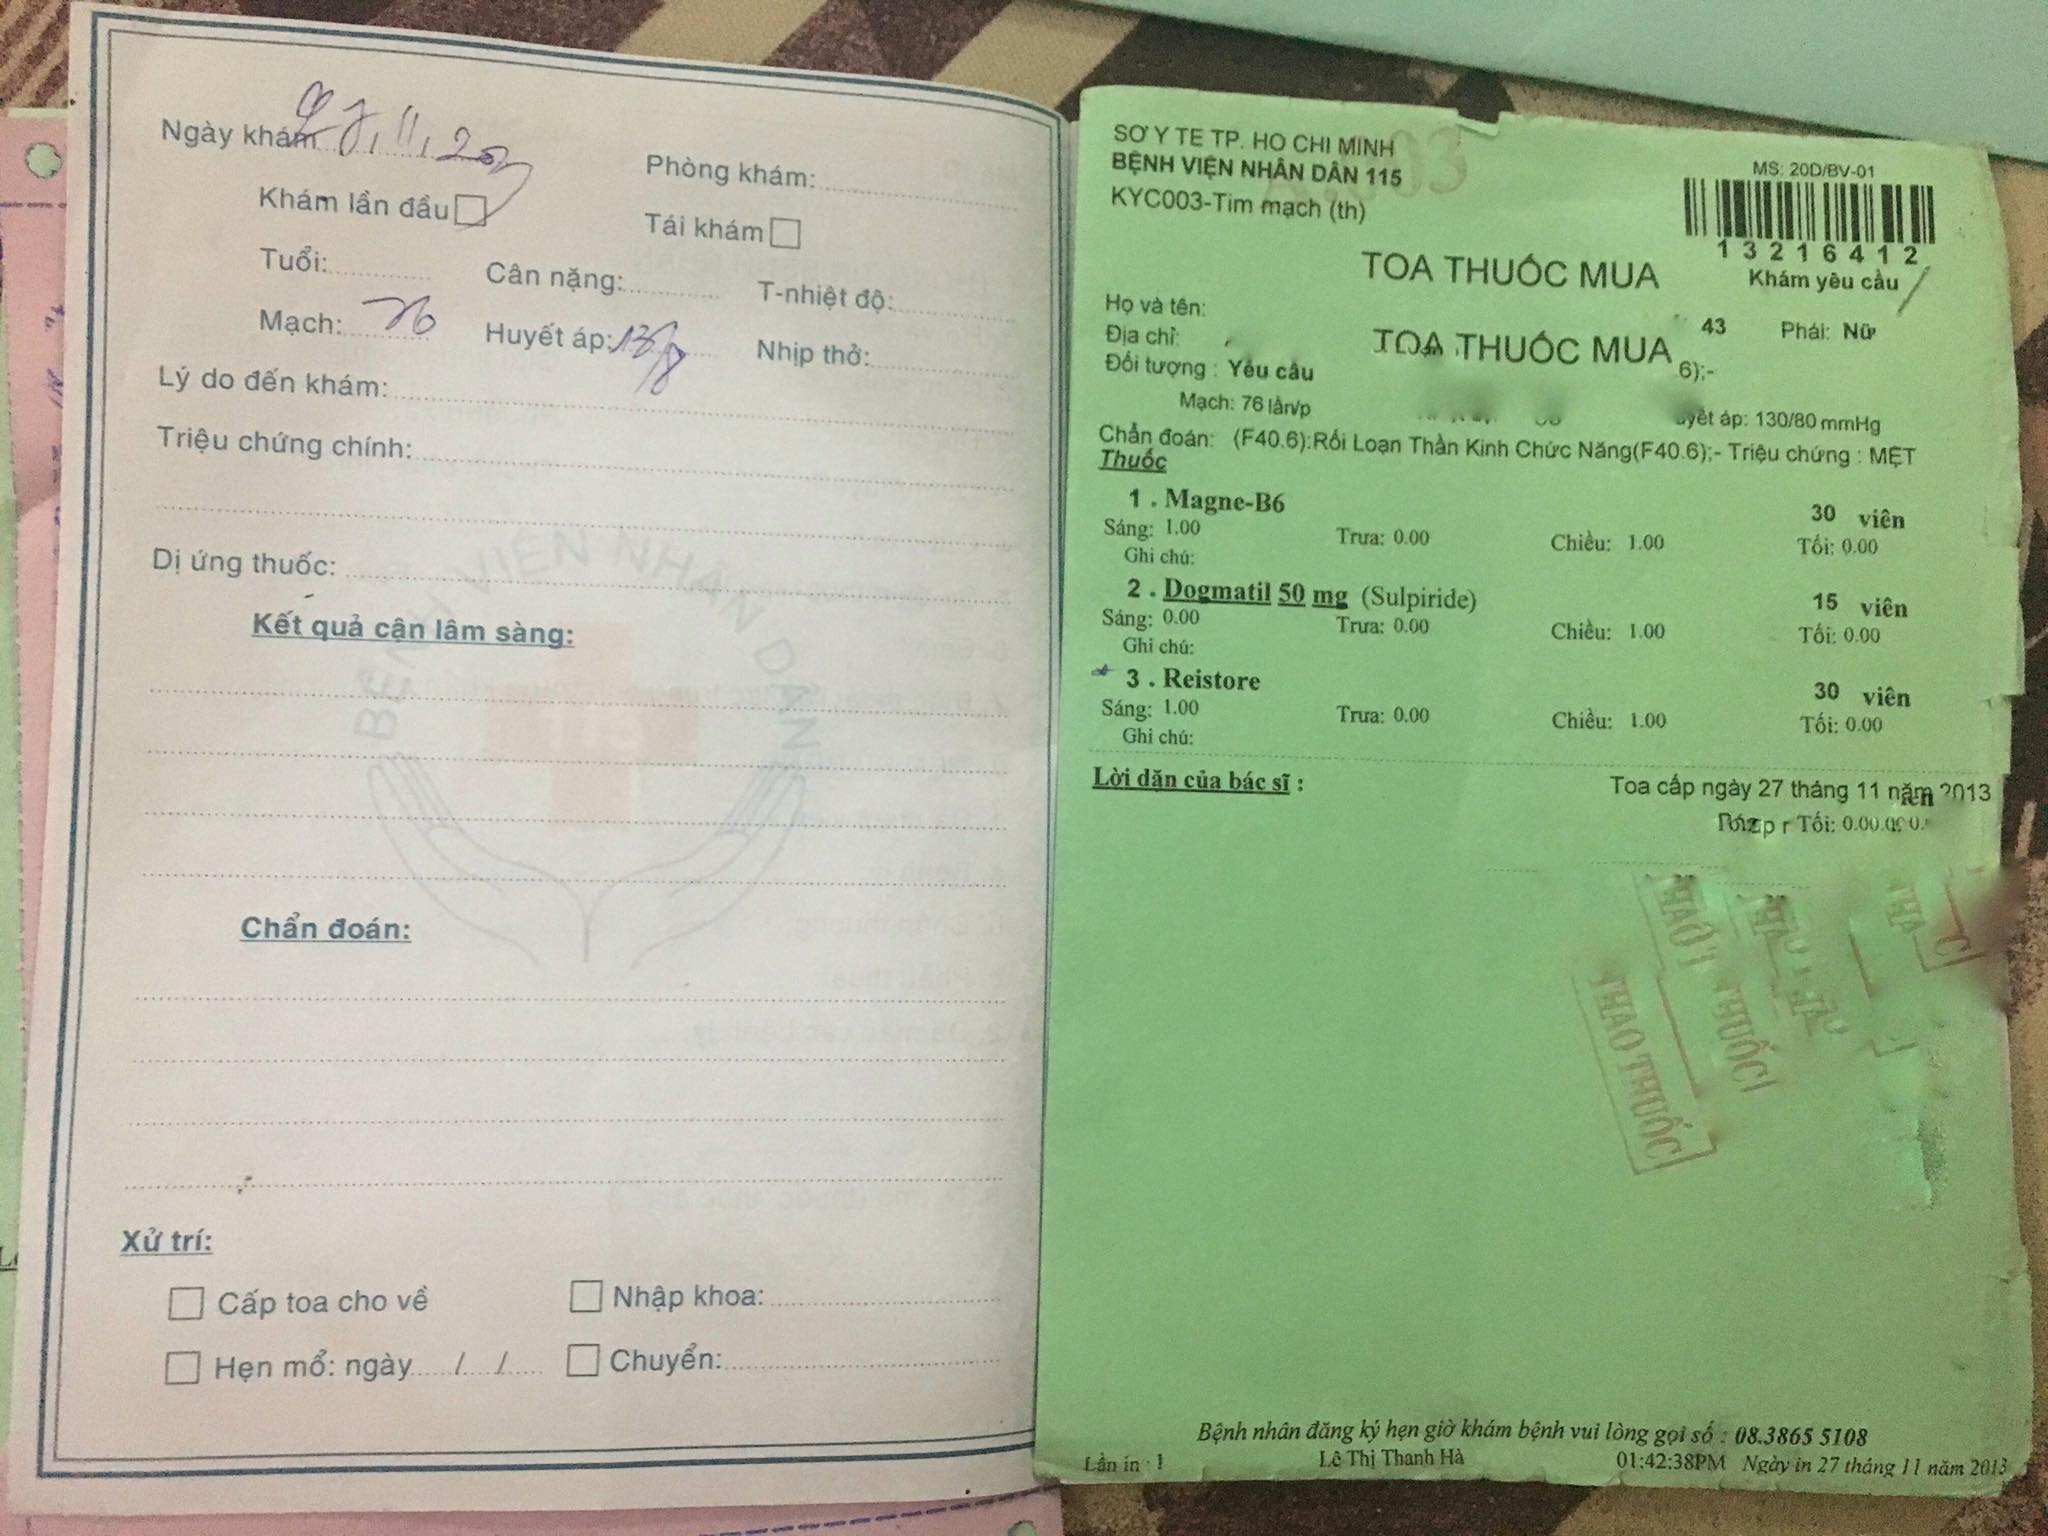 Ngày khám 27, 11, 20
Khám lần đầu
Phòng khám:
Tái khám
Tuổi:
Cân nặng:
T-nhiệt độ:
Mạch: 76
Huyết áp: 13/8
Nhịp thở:
Lý do đến khám:
Triệu chứng chính:
Dị ứng thuốc:
BỆNH VIỆN NHÂN DÂN
Kết quả cận lâm sàng:
Chẩn đoán:
Xử trí:
Cấp toa cho về
Nhập khoa:
Hẹn mổ: ngày / /
Chuyển:
SỞ Y TẾ TP. HỒ CHÍ MINH
BỆNH VIỆN NHÂN DÂN 115
KYC003-Tim mạch (th)
03
MS: 20D/BV-01
13216412
Khám yêu cầu
TOA THUỐC MUA
Họ và tên:
Địa chỉ:
TOA THUỐC MUA
43 Phái: Nữ
Đối tượng : Yêu cầu
6);-
Mạch: 76 lần/p
yết áp: 130/80 mmHg
Chẩn đoán: (F40.6):Rối Loạn Thần Kinh Chức Năng(F40.6);- Triệu chứng : MỆT
Thuốc
1 . Magne-B6 30 viên
Sáng: 1.00 Trưa: 0.00 Chiều: 1.00 Tối: 0.00
Ghi chú:
2 . Dogmatil 50 mg (Sulpiride) 15 viên
Sáng: 0.00 Trưa: 0.00 Chiều: 1.00 Tối: 0.00
Ghi chú:
3 . Reistore 30 viên
Sáng: 1.00 Trưa: 0.00 Chiều: 1.00 Tối: 0.00
Ghi chú:
Lời dặn của bác sĩ :
Toa cấp ngày 27 tháng 11 năm 2013
Tối: 0.00
THAO THUỐC
Bệnh nhân đăng ký hẹn giờ khám bệnh vui lòng gọi số : 08.3865 5108
Lần in : 1 Lê Thị Thanh Hà 01:42:38PM Ngày in 27 tháng 11 năm 2013